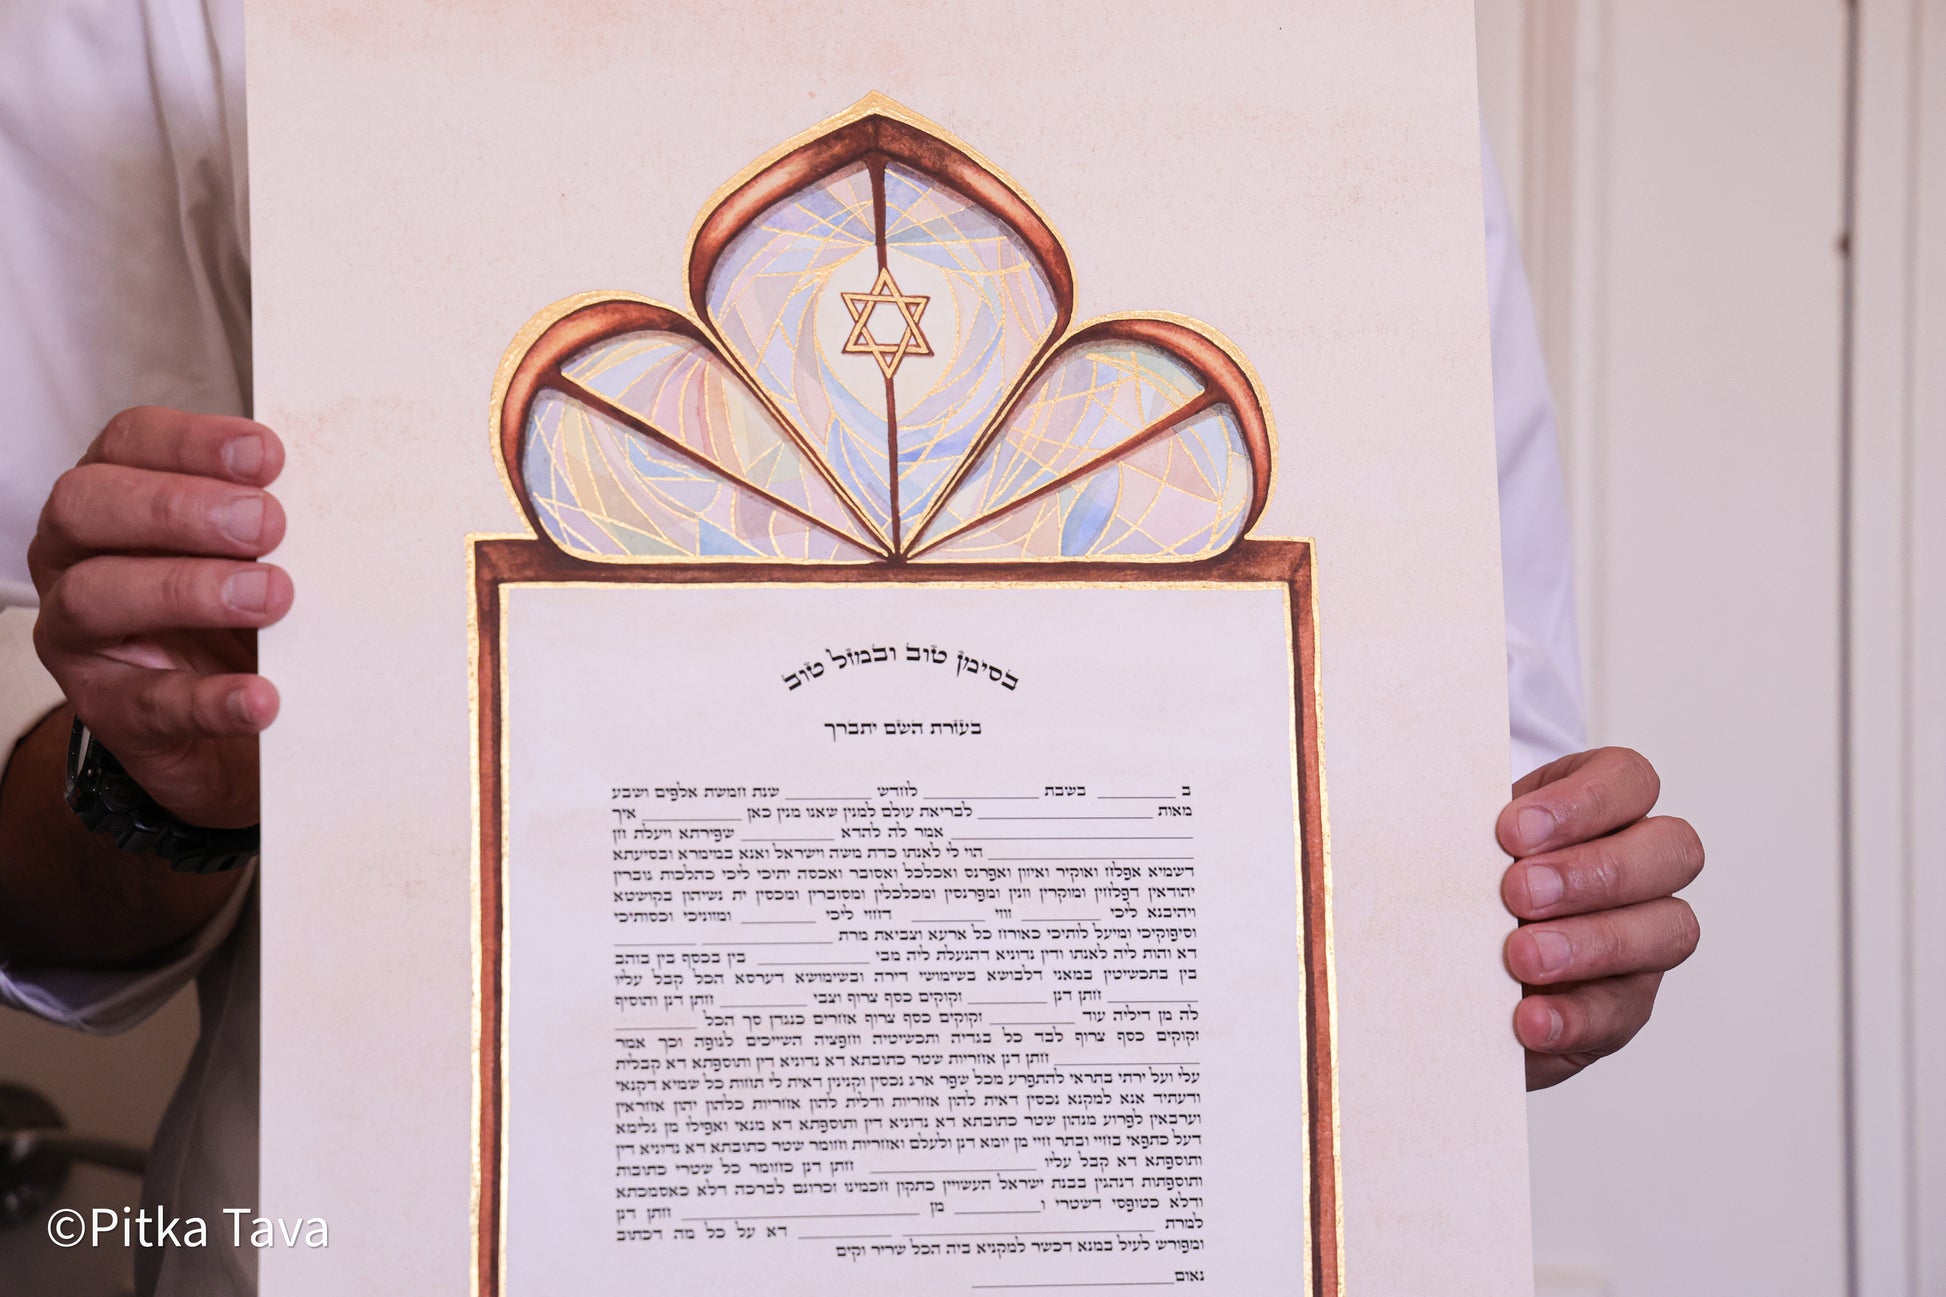 בסימן טוב ובמזל טוב
בעזרת השם יתברך
ב ________ בשבת ____________ לחדש _________ שנת חמשת אלפים ושבע
מאות __________________ לבריאת עולם למנין שאנו מנין כאן __________ איך
_________________________ אמר לה להדא __________ שפירתא ויעלת חן
_____________________ הוי לי לאנתו כדת משה וישראל ואנא במימרא ובסיעתא
דשמיא אפלח ואוקיר ואיזון ואפרנס ואכלכל ואסובר ואכסה יתיכי ליכי כהלכות גוברין
יהודאין דפלחין ומוקרין וזנין ומפרנסין ומכלכלין ומסוברין ומכסין ית נשיהון בקושטא
ויהיבנא ליכי ________ זוזי ________ דחזי ליכי ________ ומזוניכי וכסותיכי
וסיפוקיכי ומיעל לותיכי כאורח כל ארעא וצביאת מרת _____________ ________
דא והות ליה לאנתו ודין נדוניא דהנעלת ליה מבי ___________ בין בכסף בין בזהב
בין בתכשיטין במאני דלבושא בשימושי דירה ובשימושא דערסא הכל קבל עליו
_________ חתן דנן ________ זקוקים כסף צרוף וצבי _________ חתן דנן והוסיף
לה מן דיליה עוד _________ זקוקים כסף צרוף אחרים כנגדן סך הכל ________
זקוקים כסף צרוף לבד כל בגדיה ותכשיטיה וחפציה השייכים לגופה וכך אמר
_______________ חתן דנן אחריות שטר כתובתא דא נדוניא דין ותוספתא דא קבלית
עלי ועל ירתי בתראי להתפרע מכל שפר ארג נכסין וקנינין דאית לי תחות כל שמיא דקנאי
ודעתיד אנא למקנא נכסין דאית להון אחריות ודלית להון אחריות כלהון יהון אחראין
וערבאין לפרוע מנהון שטר כתובתא דא נדוניא דין ותוספתא דא מנאי ואפילו מן גלימא
דעל כתפאי בחיי ובתר חיי מן יומא דנן ולעלם ואחריות וחומר שטר כתובתא דא נדוניא דין
ותוספתא דא קבל עליו _________________ חתן דנן כחומר כל שטרי כתובות
ותוספתות דנהגין בבנת ישראל העשויין כתקון חזכמינו זכרונם לברכה דלא כאסמכתא
ודלא כטופסי דשטרי ו_________ מן _________________________ חתן דנן
למרת __________________________ __________ דא על כל מה דכתוב
ומפורש לעיל במנא דכשר למקניא ביה הכל שריר וקים
נאום_____________________
©Pitka Tava